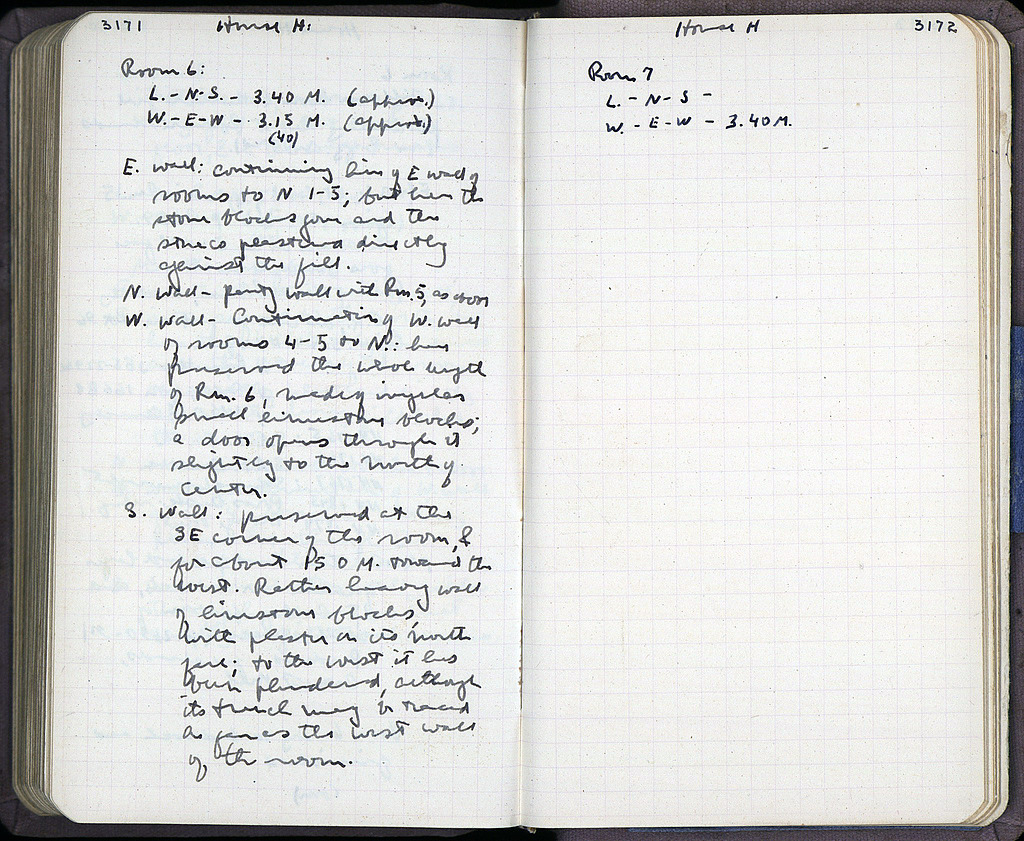 3171 House H:
Room 6:
L. - N-S. - 3.40 M. (approx.)
W. - E-W - 3.15 M. (approx.)
(40)
E. wall: continuing line of E wall of
rooms to N 1-5; but here the
stone blocks gone and the
stucco plastered directly
against the fill.
N. wall - party wall with Rm. 5, as above
W. wall - Continuation of W. wall
of rooms 4-5 to N.: here
preserved the whole length
of Rm. 6, made of irregular
small limestone blocks;
a door opens through it
slightly to the north of
center.
S. wall: preserved at the
SE corner of the room, &
for about 1.50 M. toward the
west. Rather heavy wall
of limestone blocks,
with plaster on its north
face; to the west it has
been plundered, although
its trench may be traced
as far as the west wall
of the room.
House H 3172
Room 7
L. - N-S -
W. - E-W - 3.40 M.